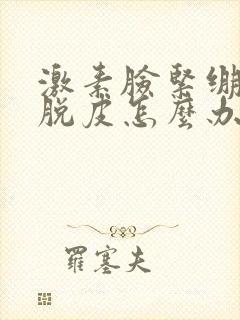 激素臉緊绷
脫皮怎麼办
羅塞夫